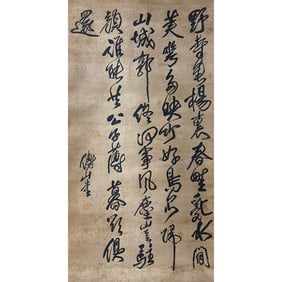 野寺垂楊裏春畦亂水間
美花多映竹好鳥不歸
山城郭終何事風塵豈駐
顏誰能共公子薄暮欲俱
還
傅山書